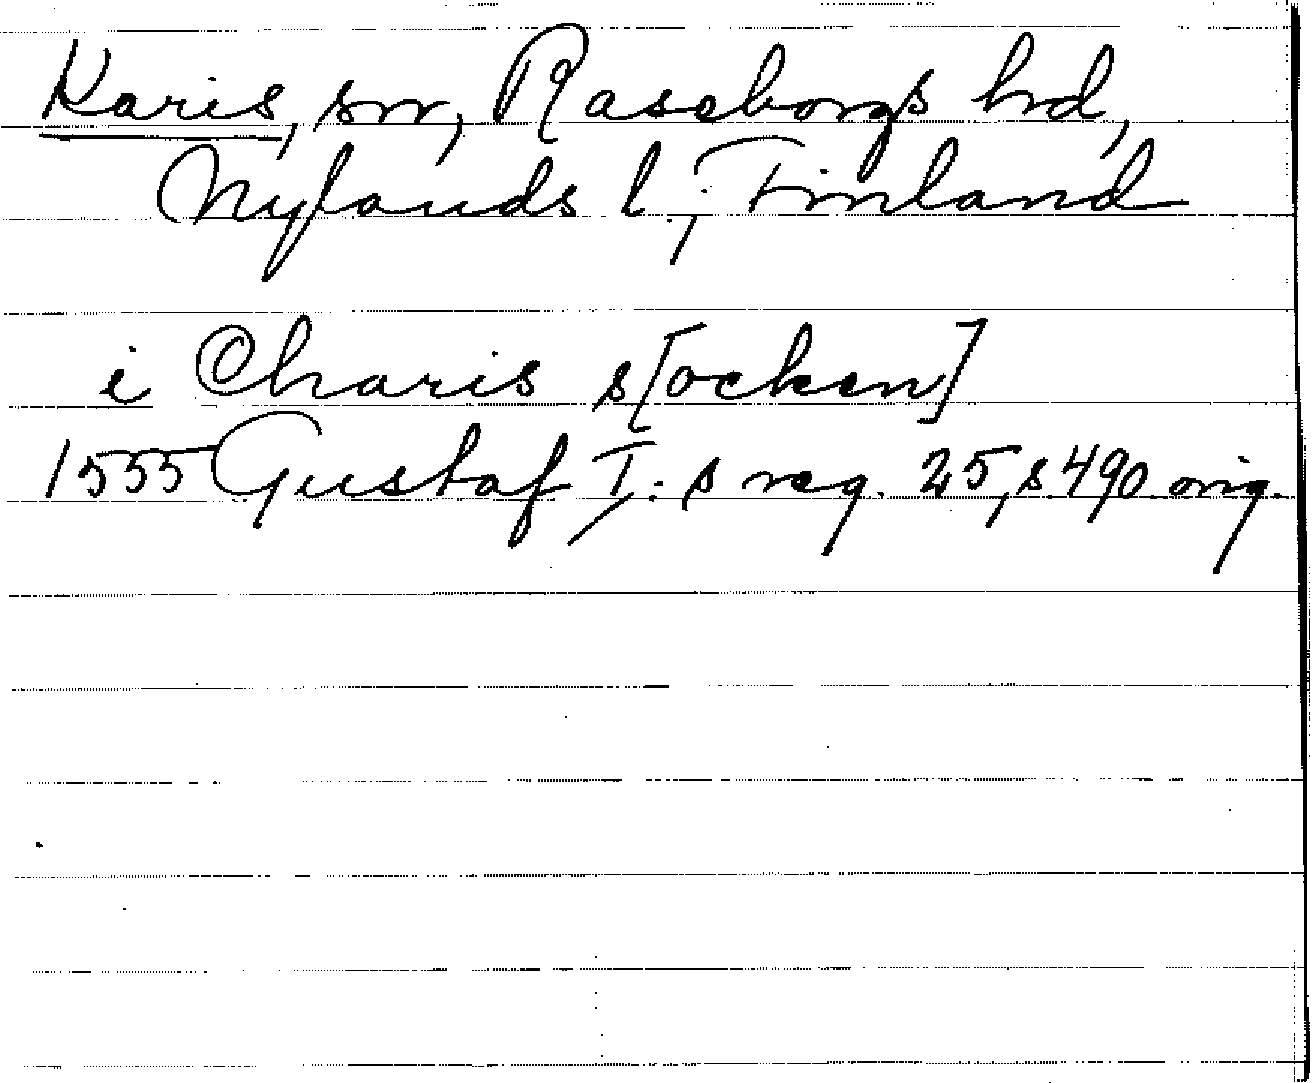 Karis, sn, Raseborgs hd,
Nylands l., Finland
i Charis s[ocken]
1555 Gustaf I:s reg. 25, s 490 orig.